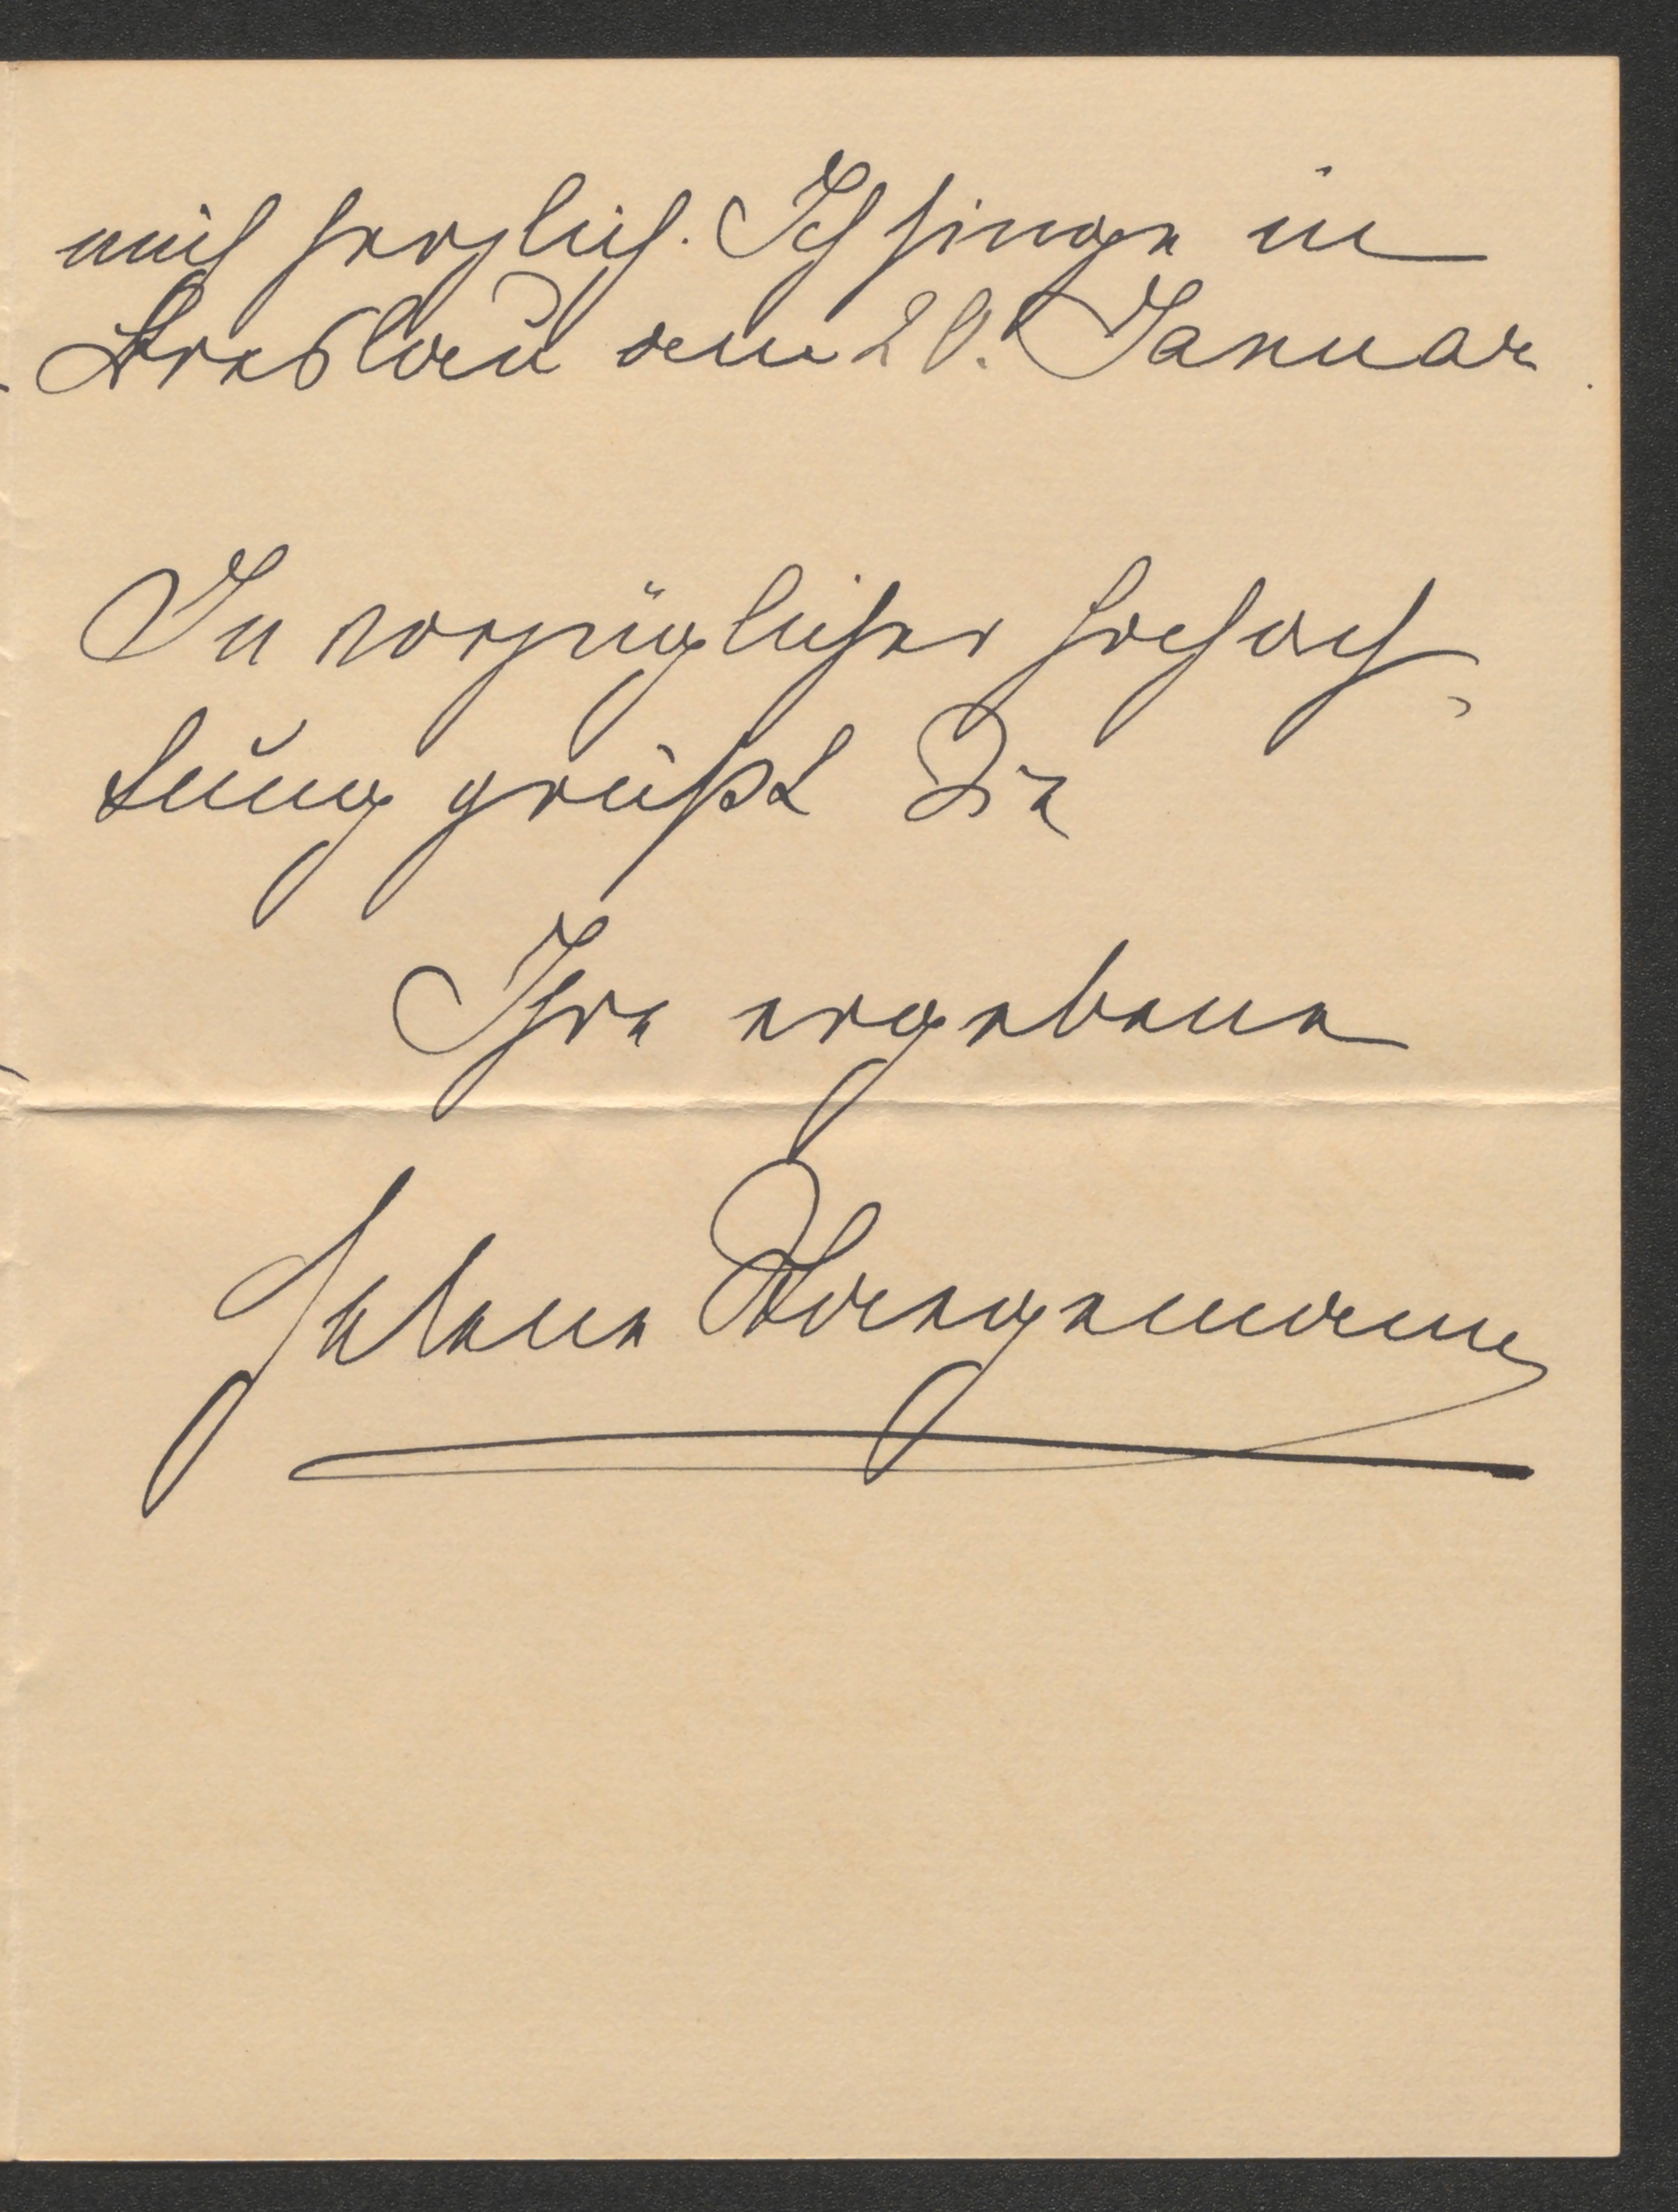 mich herzlich. Ich singe in
Breslau am 20. Januar.
In vorzüglicher Hochach-
tung grüßt Sie
Ihre ergebene
Helene Staegemann